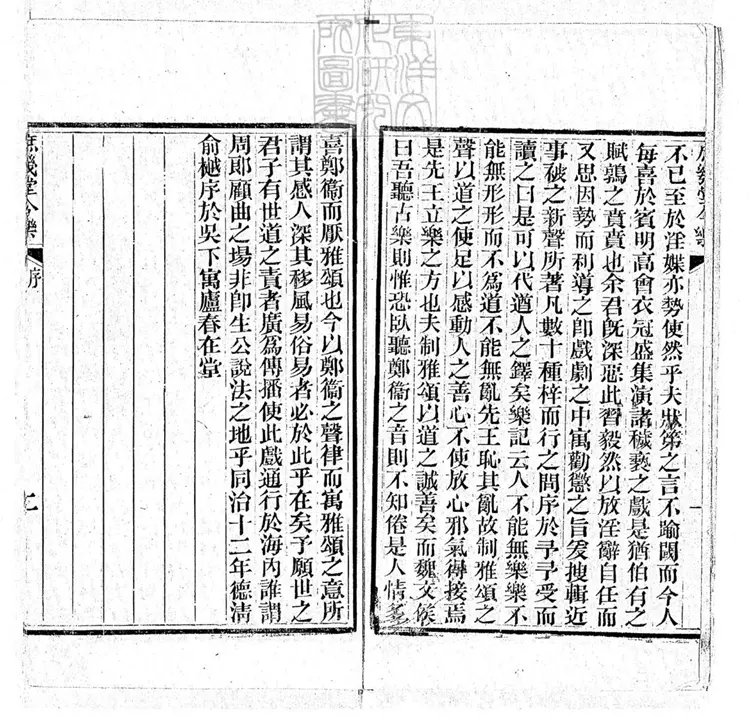 東洋文
化研究
所圖書
庶幾堂今樂
不已至於淫媟亦勢使然乎夫牀笫之言不踰閾而今人
每喜於賓朋高會衣冠盛集演諸穢褻之戲是猶伯有之
賦鶉之賁賁也余君旣深惡此習毅然以放淫辭自任而
又思因勢而利導之卽戲劇之中寓勸懲之旨爰搜輯近
事破之新聲所著凡數十種梓而行之問序於予予受而
讀之曰是可以代遒人之鐸矣樂記云人不能無樂樂不
能無形形而不爲道不能無亂先王恥其亂故制雅頌之
聲以道之使足以感動人之善心不使放心邪氣得接焉
是先王立樂之方也夫制雅頌以道之誠善矣而魏文侯
曰吾聽古樂則惟恐臥聽鄭衞之音則不知倦是人情多
喜鄭衞而厭雅頌也今以鄭衞之聲律而寓雅頌之意所
謂其感人深其移風易俗易者必於此乎在矣予願世之
君子有世道之責者廣爲傳播使此戲通行於海內誰謂
周郎顧曲之場非卽生公說法之地乎同治十二年德淸
俞樾序於吳下寓廬春在堂
庶幾堂今樂
序